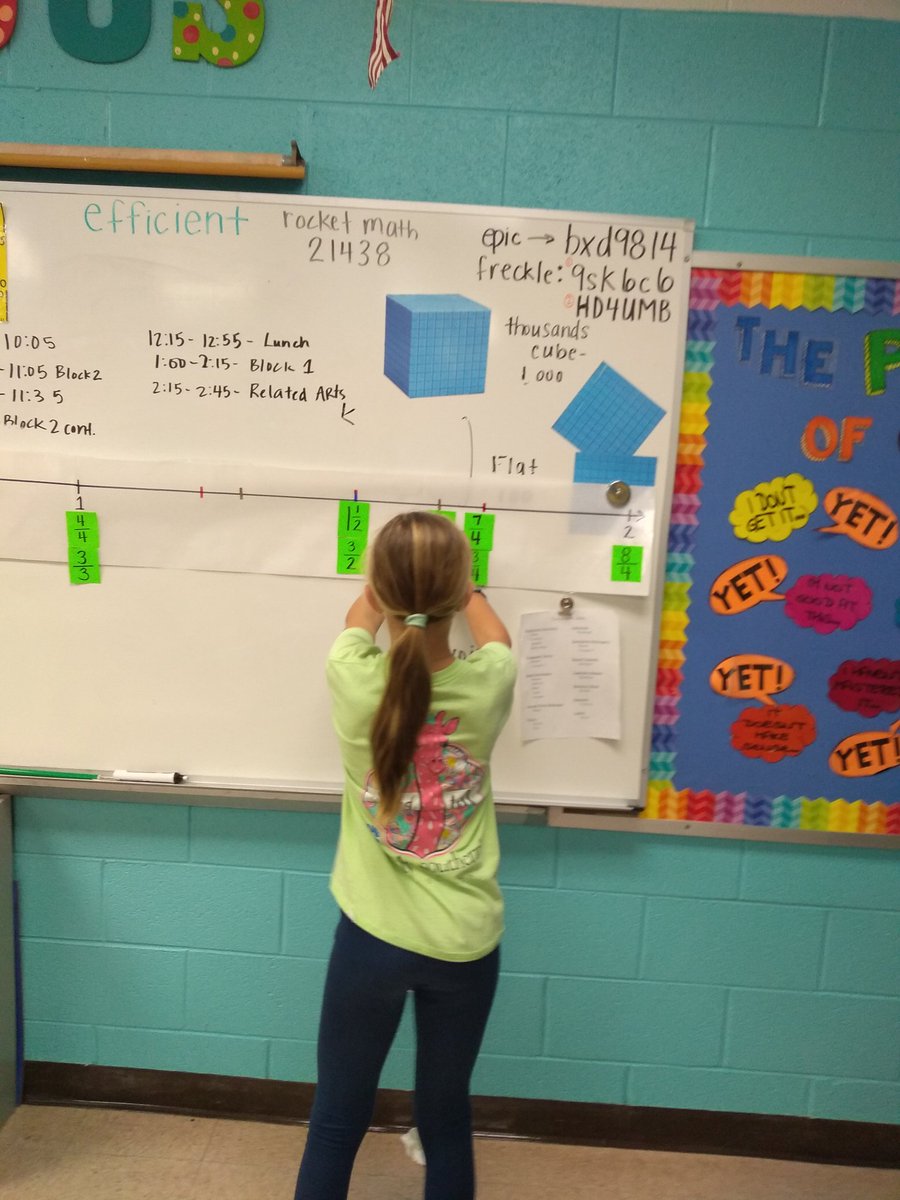 efficient
rocket math
21438
epic → bxd9814
freckle: ① 9sk6cb
② HD4UMB
10:05
-11:05 Block2
- 11:35
Block 2 cont.
12:15 - 12:55 - Lunch
1:00 - 2:15 - Block 1
2:15 - 2:45 - Related Arts
thousands
cube-
1,000
Flat
1
4/4
3/3
1 1/2
3/2
7/4
3/4
2
8/4
THE P
OF
I DON'T
GET IT...
YET!
YET!
I'M NOT
GOOD AT
THIS...
YET!
IT
DOESN'T
MAKE
SENSE...
I HAVEN'T
MASTERED
IT...
YET!